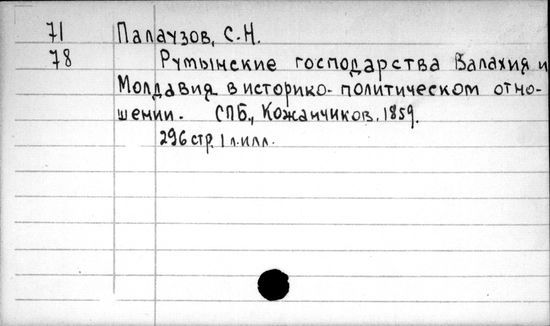 71 Палаузов, С.Н.
78 Румынские господарства Валахия и
Молдавия в историко-политическом отно-
шении. СПБ., Кожанчиков, 1859.
296 стр. 1 л. илл.